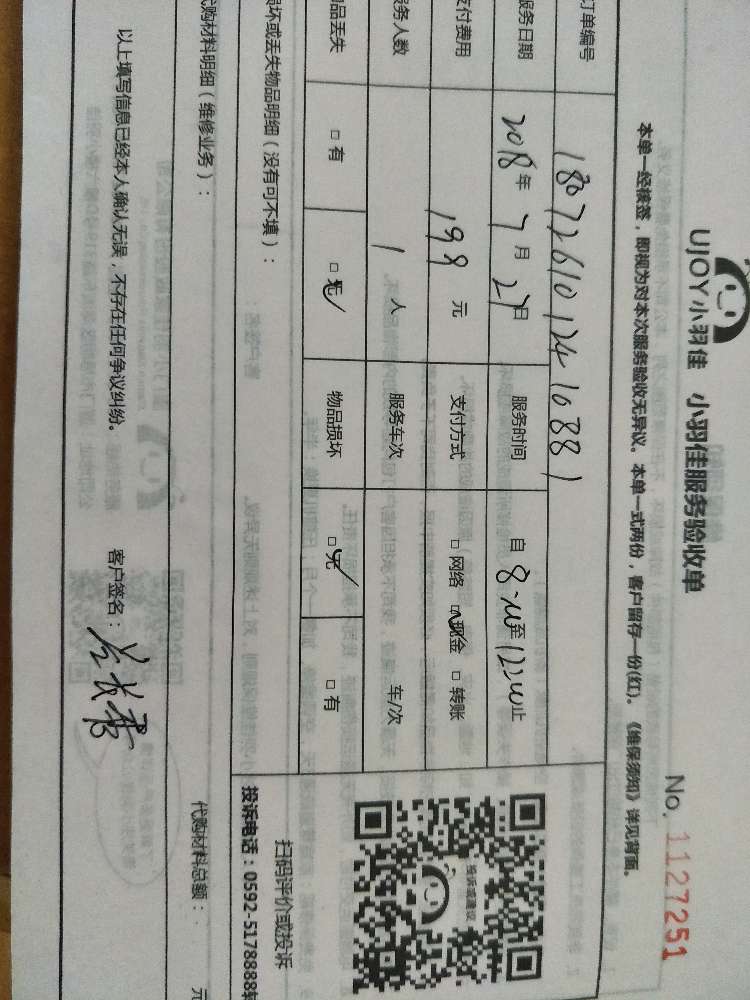 UJOY小羽佳 小羽佳服务验收单
No. 1127251
本单一经核签，即视为对本次服务验收无异议。本单一式两份，客户留存一份(红)。《维保须知》详见背面。
订单编号 180726101241 0881
服务日期 2018年7月27日 服务时间 自8:00至12:00止
支付费用 198元 支付方式 □网络 □现金 □转账
服务人数 1人 服务车次 车/次
物品丢失 □有 □无 物品损坏 □无 □有
损坏或丢失物品明细（没有可不填）：
投诉或建议
扫码评价或投诉
投诉电话：0592-5178888转
代购材料明细（维修业务）： 代购材料总额： 元
以上填写信息已经本人确认无误，不存在任何争议纠纷。 客户签名：